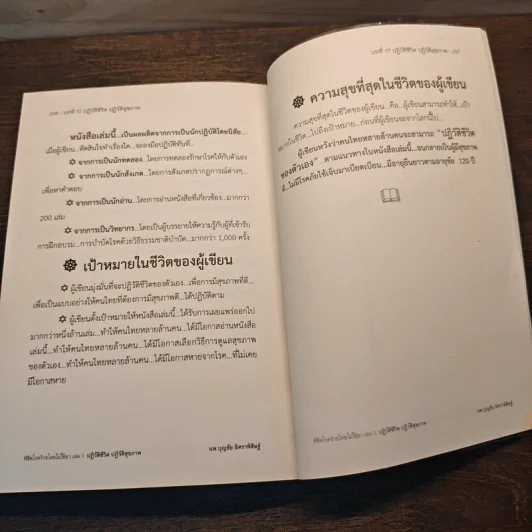 256 - บทที่ 17 ปฏิวัติชีวิต ปฏิวัติสุขภาพ
หนังสือเล่มนี้...เป็นผลผลิตจากการเป็นนักปฏิบัติโดยนิสัย...
เมื่อผู้เขียน...ตัดสินใจทำเรื่องใด...จะลงมือปฏิบัติทันที...
จากการเป็นนักทดลอง...โดยการทดลองรักษาโรคให้กับตัวเอง
จากการเป็นนักสังเกต...โดยการสังเกตปรากฏการณ์ต่างๆ...
เพื่อหาคำตอบ
จากการเป็นนักอ่าน...โดยการอ่านหนังสือที่เกี่ยวข้อง...มากกว่า
200 เล่ม
จากการเป็นวิทยากร...โดยเป็นผู้บรรยายให้ความรู้กับผู้ที่เข้ารับ
การฝึกอบรม...การบำบัดโรคด้วยวิธีธรรมชาติบำบัด...มากกว่า 1,000 ครั้ง
เป้าหมายในชีวิตของผู้เขียน
ผู้เขียนมุ่งมั่นที่จะปฏิวัติชีวิตของตัวเอง...เพื่อการมีสุขภาพที่ดี...
เพื่อเป็นแบบอย่างให้คนไทยที่ต้องการมีสุขภาพดี...ได้ปฏิบัติตาม
ผู้เขียนตั้งเป้าหมายให้หนังสือเล่มนี้...ได้รับการเผยแพร่ออกไป
มากกว่าหนึ่งล้านเล่ม...ทำให้คนไทยหลายล้านคน...ได้มีโอกาสอ่านหนังสือ
เล่มนี้...ทำให้คนไทยหลายล้านคน...ได้มีโอกาสเลือกวิธีการดูแลสุขภาพ
ของตัวเอง...ทำให้คนไทยหลายล้านคน...ได้มีโอกาสหายจากโรค...ที่ไม่เคย
มีโอกาสหาย
พิชิตโรคร้ายโดยไม่ใช้ยา เล่ม 1 ปฏิวัติชีวิต ปฏิวัติสุขภาพ
นพ.บุญชัย อิศราพิสิษฐ์
บทที่ 17 ปฏิวัติชีวิต ปฏิวัติสุขภาพ - 257
ความสุขที่สุดในชีวิตของผู้เขียน
ความสุขที่สุดในชีวิตของผู้เขียน...คือ...ผู้เขียนสามารถทำได้...เป้า
หมายในชีวิต...ไปถึงเป้าหมาย...ก่อนที่ผู้เขียนจะจากโลกนี้ไป...
ผู้เขียนหวังว่าคนไทยหลายล้านคนจะสามารถ "ปฏิวัติชีวิต
ของตัวเอง"...ตามแนวทางในหนังสือเล่มนี้...จนกลายเป็นผู้มีสุขภาพ
ดี...ไม่มีโรคภัยไข้เจ็บมาเบียดเบียน...มีอายุยืนยาวตามอายุขัย 120 ปี
พิชิตโรคร้ายโดยไม่ใช้ยา เล่ม 1 ปฏิวัติชีวิต ปฏิวัติสุขภาพ
นพ.บุญชัย อิศราพิสิษฐ์